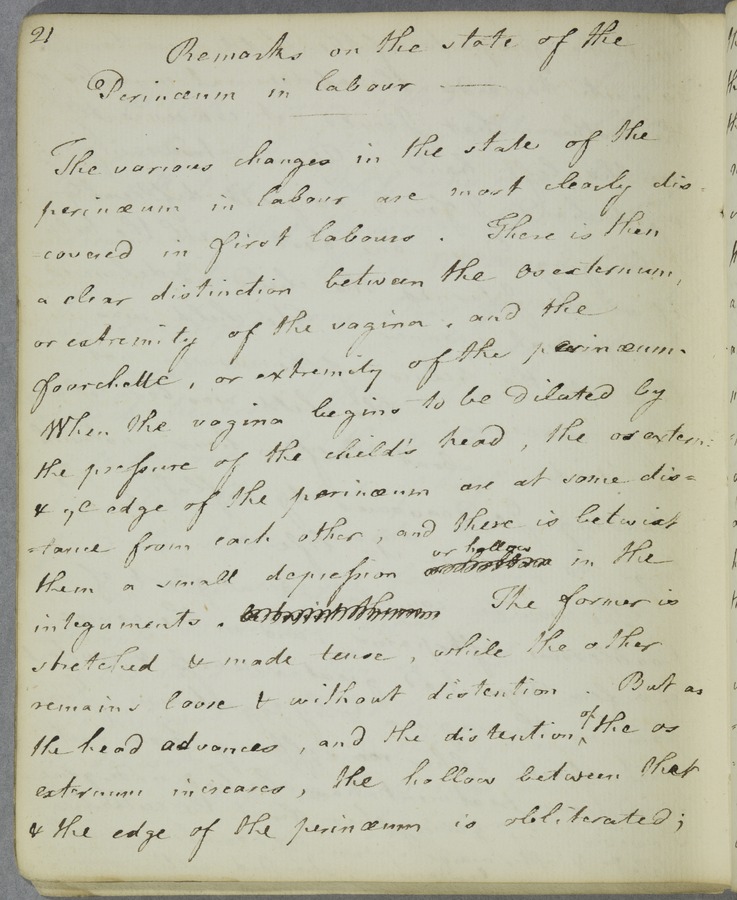 21
Remarks on the state of the
Perinæum in labour —
The various changes in the state of the
perinæum in labour are most clearly dis-
-covered in first labours. There is then
a clear distinction between the os externum,
or extremity of the vagina, and the
fourchette, or extremity of the perinæum.
When the vagina begins to be dilated by
the pressure of the child's head, the os extern:
& ye edge of the perinæum are at some dis=
-tance from each other, and there is betwixt
them a small depression or hollow in the
integuments. The former is
stretched & made tense, while the other
remains loose & without distention. But as
the head advances, and the distention of the os
externum increases, the hollow between that
& the edge of the perinæum is obliterated;